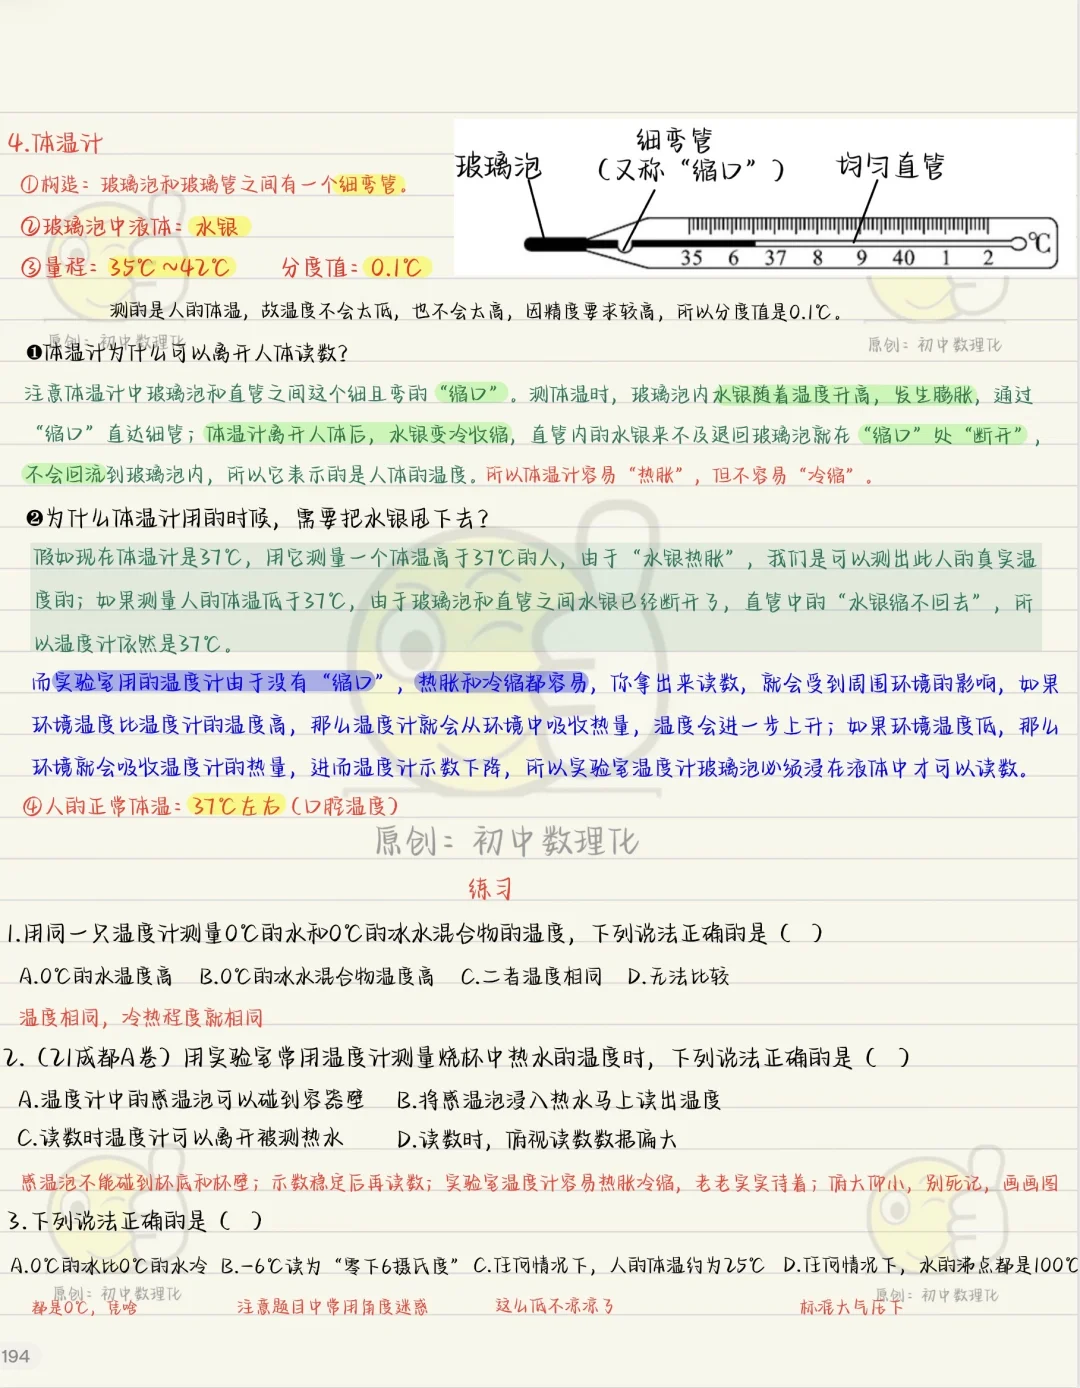 4.体温计
①构造：玻璃泡和玻璃管之间有一个细弯管。
②玻璃泡中液体：水银
③量程：35℃~42℃ 分度值：0.1℃
玻璃泡
细弯管
（又称“缩口”）
均匀直管
35 6 37 8 9 40 1 2 ℃
测的是人的体温，故温度不会太低，也不会太高，因精度要求较高，所以分度值是0.1℃。
原创：初中数理化
原创：初中数理化
❶体温计为什么可以离开人体读数？
注意体温计中玻璃泡和直管之间这个细且弯的“缩口”。测体温时，玻璃泡内水银随着温度升高，发生膨胀，通过
“缩口”直达细管；体温计离开人体后，水银变冷收缩，直管内的水银来不及退回玻璃泡就在“缩口”处“断开”，
不会回流到玻璃泡内，所以它表示的是人体的温度。所以体温计容易“热胀”，但不容易“冷缩”。
❷为什么体温计用的时候，需要把水银甩下去？
假如现在体温计是37℃，用它测量一个体温高于37℃的人，由于“水银热胀”，我们是可以测出此人的真实温
度的；如果测量人的体温低于37℃，由于玻璃泡和直管之间水银已经断开了，直管中的“水银缩不回去”，所
以温度计依然是37℃。
而实验室用的温度计由于没有“缩口”，热胀和冷缩都容易，你拿出来读数，就会受到周围环境的影响，如果
环境温度比温度计的温度高，那么温度计就会从环境中吸收热量，温度会进一步上升；如果环境温度低，那么
环境就会吸收温度计的热量，进而温度计示数下降，所以实验室温度计玻璃泡必须浸在液体中才可以读数。
④人的正常体温：37℃左右（口腔温度）
原创：初中数理化
练习
1.用同一只温度计测量0℃的水和0℃的冰水混合物的温度，下列说法正确的是（ ）
A.0℃的水温度高 B.0℃的冰水混合物温度高 C.二者温度相同 D.无法比较
温度相同，冷热程度就相同
2.（21成都A卷）用实验室常用温度计测量烧杯中热水的温度时，下列说法正确的是（ ）
A.温度计中的感温泡可以碰到容器壁 B.将感温泡浸入热水马上读出温度
C.读数时温度计可以离开被测热水 D.读数时，俯视读数数据偏大
感温泡不能碰到杯底和杯壁；示数稳定后再读数；实验室温度计容易热胀冷缩，老老实实待着；俯大仰小，别死记，画画图
3.下列说法正确的是（ ）
A.0℃的冰比0℃的水冷 B.-6℃读为“零下6摄氏度” C.任何情况下，人的体温约为25℃ D.任何情况下，水的沸点都是100℃
原创：初中数理化
原创：初中数理化
都是0℃，凭啥 注意题目中常用角度迷惑 这么低不凉凉了 标准大气压下
194